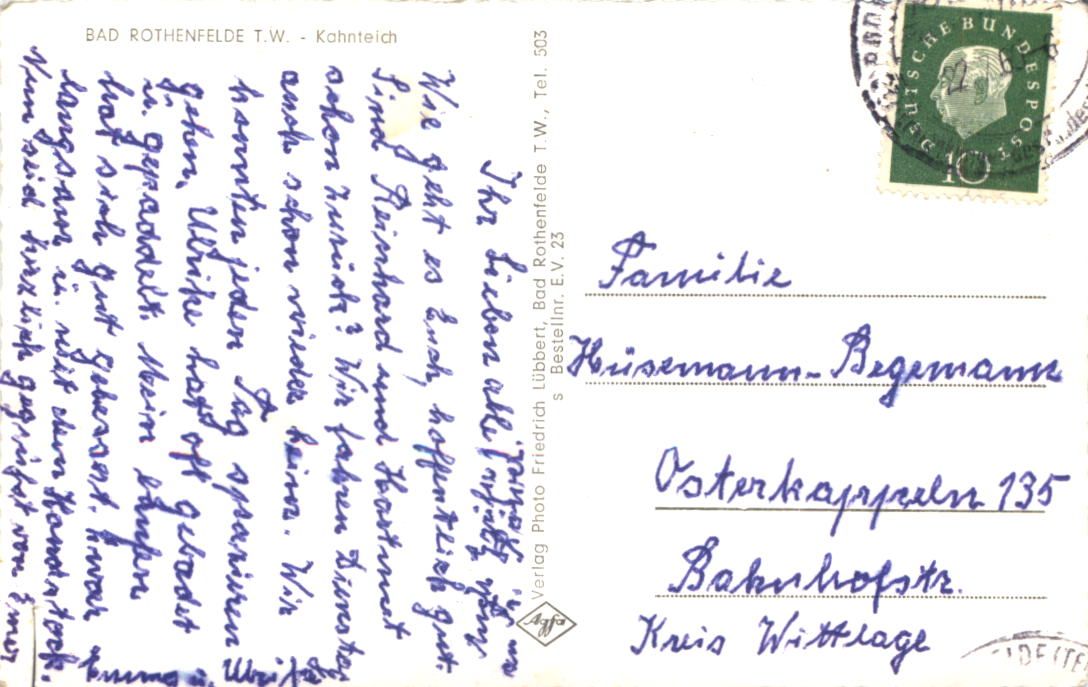 BAD ROTHENFELDE T.W. - Kahnteich
Ihr Lieben alle!
Wie geht es Euch, hoffentlich gut.
Sind Reinhard und Hartmut
schon zurück? Wir fahren Dienstag
auch schon wieder heim. Wir
konnten jeden Tag spazieren
gehen, Ulrike hat oft gebadet
u. gepaddelt. Mein
hat sich gut gebessert, zwar
langsam u. mit dem Handstock.
Nun seid herzlich gegrüßt von Eurer
Verlag Photo Friedrich Lübbert, Bad Rothenfelde T.W., Tel. 503
s Bestellnr. E.V. 23
Agfa
DEUTSCHE BUNDESPOST
10
Familie
Hüsemann-Begemann
Osterkappeln 135
Bahnhofstr.
Kreis Wittlage